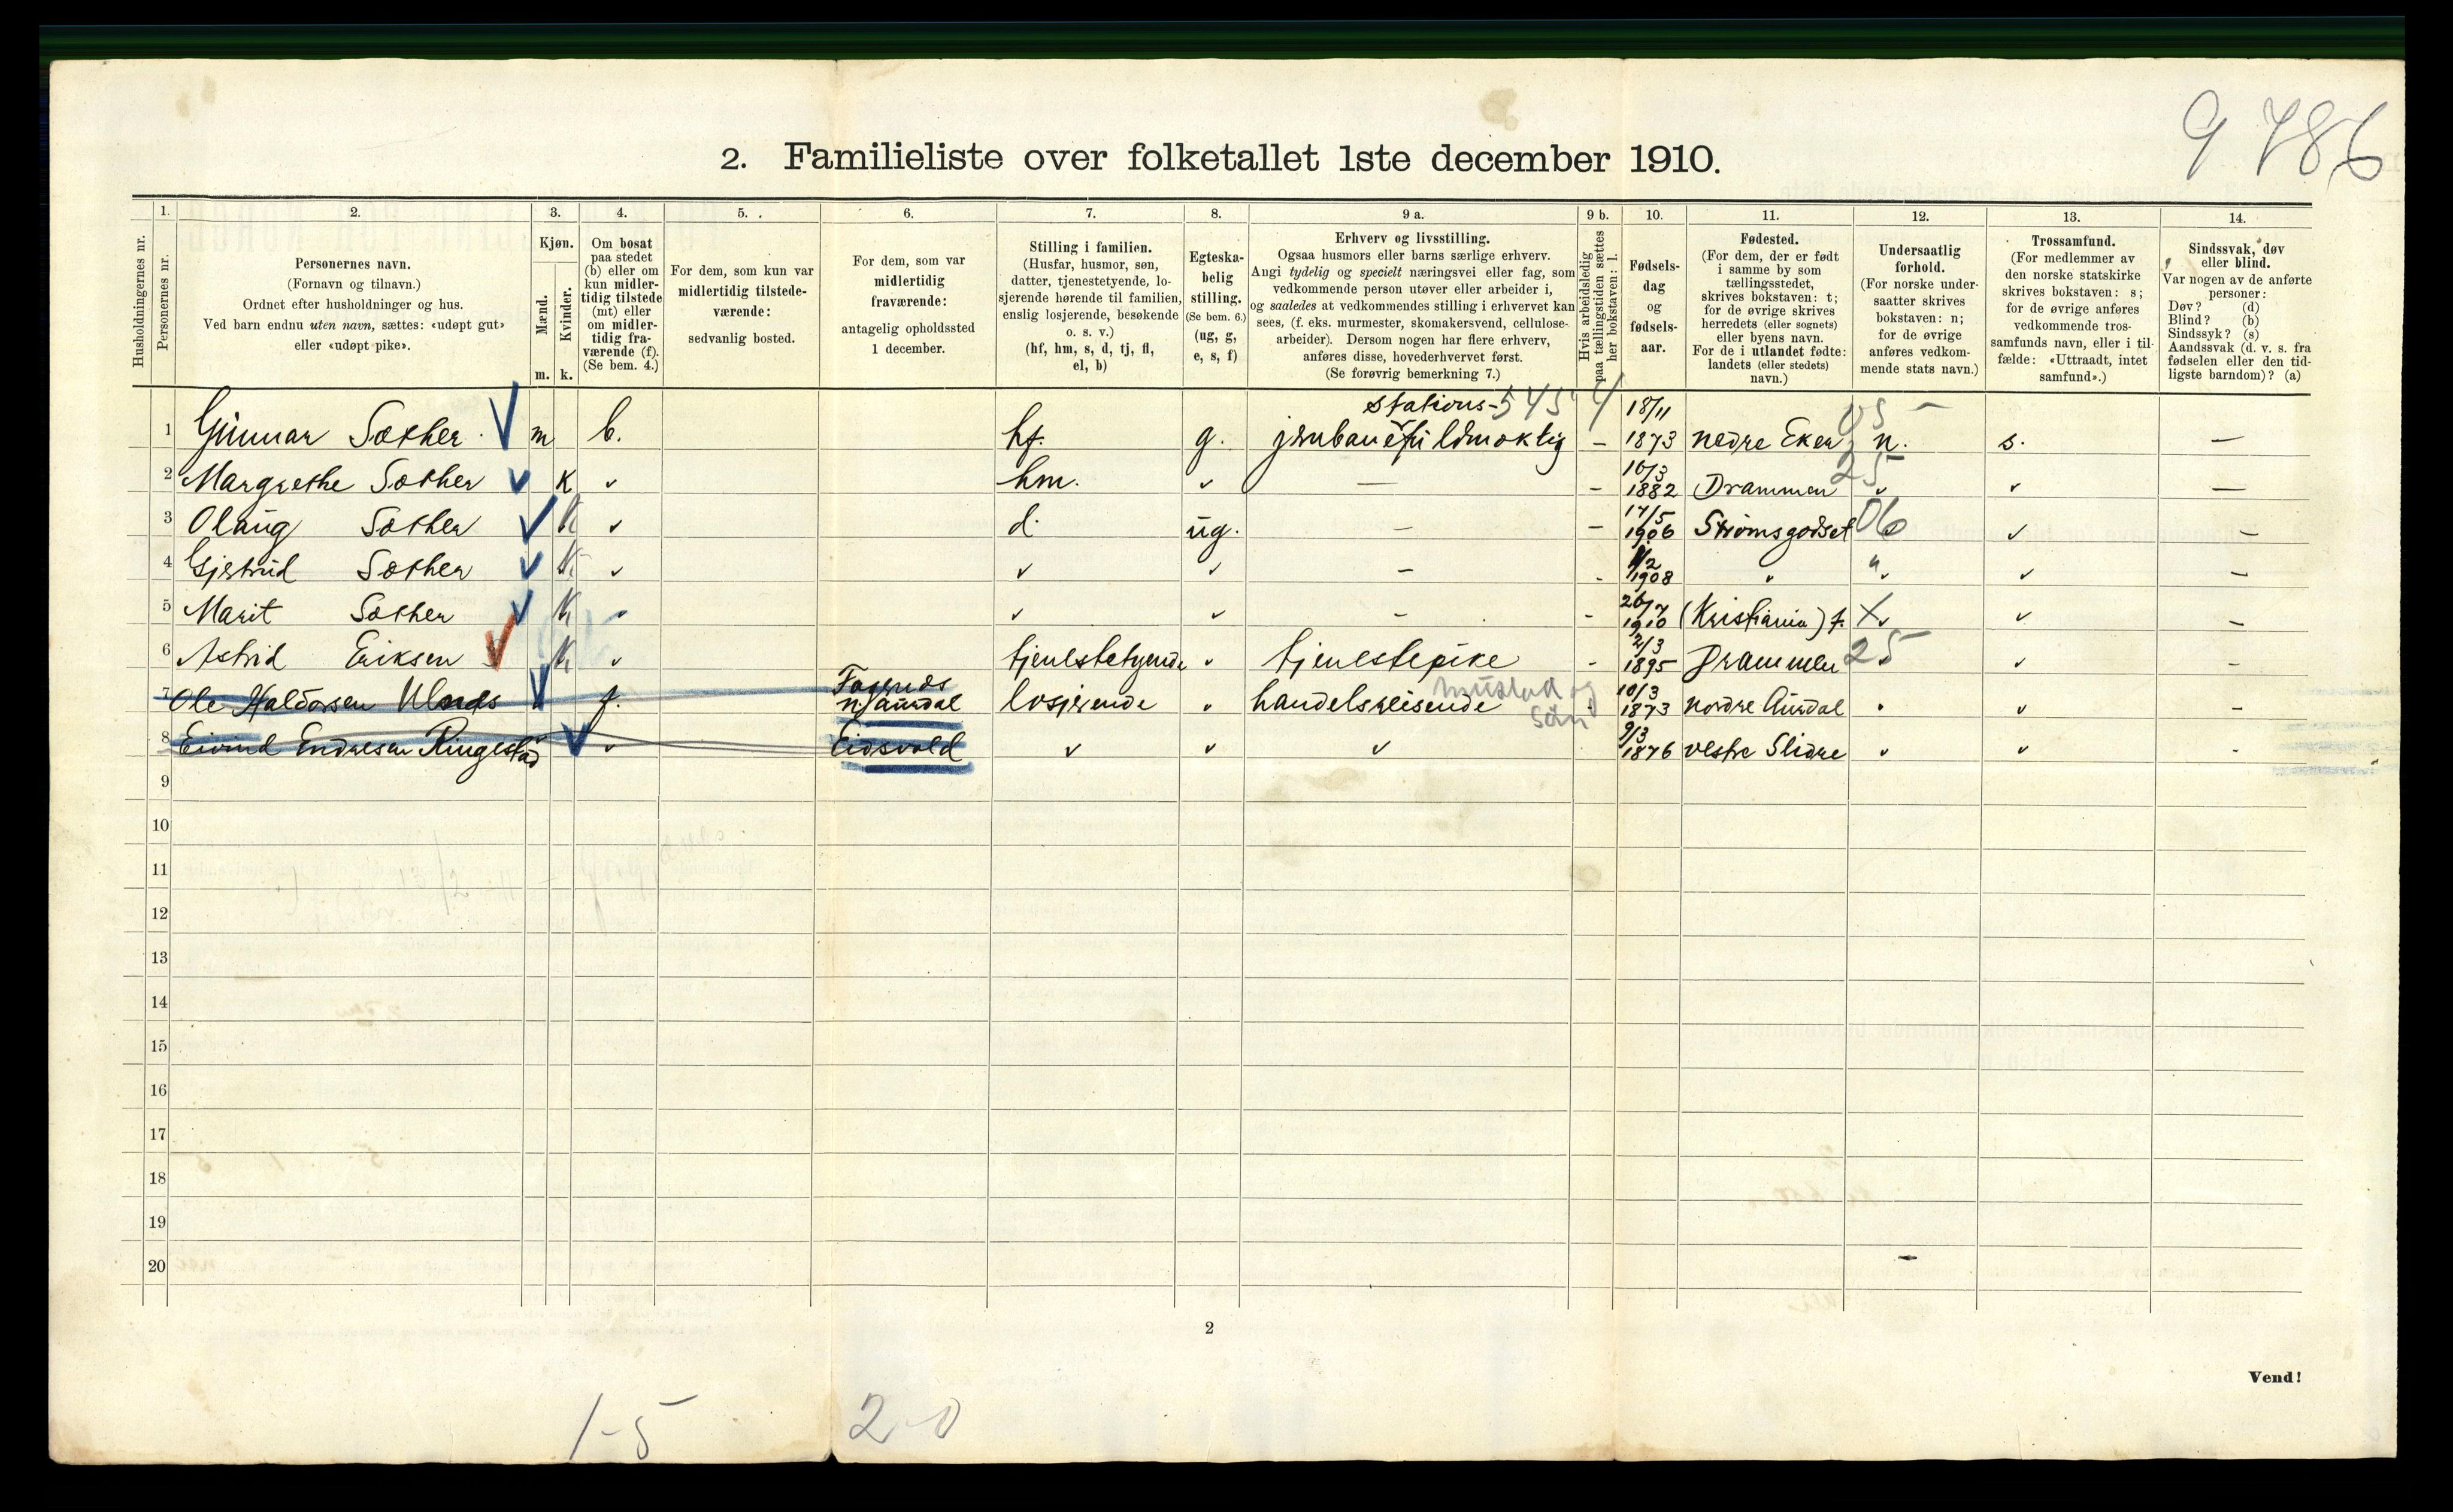 9 786
2. Familieliste over folketallet 1ste december 1910.
Husholdningernes nr.
1.
Personernes nr.
2.
Personernes navn.
(Fornavn og tilnavn.)
Ordnet efter husholdninger og hus.
Ved barn endnu uten navn, sættes: «udøpt gut»
eller «udøpt pike».
3.
Kjøn.
Mænd.
Kvinder.
m. k.
4.
Om bosat
paa stedet
(b) eller om
kun midler-
tidig tilstede
(mt) eller
om midler-
tidig fra-
værende (f).
(Se bem. 4.)
5.
For dem, som kun var
midlertidig tilstede-
værende:
sedvanlig bosted.
6.
For dem, som var
midlertidig
fraværende:
antagelig opholdssted
1 december.
7.
Stilling i familien.
(Husfar, husmor, søn,
datter, tjenestetyende, lo-
sjerende hørende til familien,
enslig losjerende, besøkende
o. s. v.)
(hf, hm, s, d, tj, fl,
el, b)
8.
Egteska-
belig
stilling.
(Se bem. 6.)
(ug, g,
e, s, f)
9 a.
Erhverv og livsstilling.
Ogsaa husmors eller barns særlige erhverv.
Angi tydelig og specielt næringsvei eller fag, som
vedkommende person utøver eller arbeider i,
og saaledes at vedkommendes stilling i erhvervet kan
sees, (f. eks. murmester, skomakersvend, cellulose-
arbeider). Dersom nogen har flere erhverv,
anføres disse, hovederhvervet først.
(Se forøvrig bemerkning 7.)
9 b.
Hvis arbeidsledig
paa tællingstiden sættes
her bokstaven: l.
10.
Fødsels-
dag
og
fødsels-
aar.
11.
Fødested.
(For dem, der er født
i samme by som
tællingsstedet,
skrives bokstaven: t;
for de øvrige skrives
herredets (eller sognets)
eller byens navn.
For de i utlandet fødte:
landets (eller stedets)
navn.)
12.
Undersaatlig
forhold.
(For norske under-
saatter skrives
bokstaven: n;
for de øvrige
anføres vedkom-
mende stats navn.)
13.
Trossamfund.
(For medlemmer av
den norske statskirke
skrives bokstaven: s;
for de øvrige anføres
vedkommende tros-
samfunds navn, eller i til-
fælde: «Uttraadt, intet
samfund».)
14.
Sindssvak, døv
eller blind.
Var nogen av de anførte
personer:
Døv? (d)
Blind? (b)
Sindssyk? (s)
Aandssvak (d. v. s. fra
fødselen eller den tid-
ligste barndom)? (a)
stations- 545 4 18/11 05 –
1 Gunnar Sæther. m b. hf. g. jernbanefuldmæktig – 1873 nedre Eker n. s. –
2 Margrethe Sæther k ✓ hm. ✓ – – 10/3 1882 Drammen 25 ✓ ✓ –
3 Olaug Sæther k ✓ d. ug. – – 17/5 1906 Strømsgodset 06 ✓ –
4 Gjertrud Sæther k ✓ ✓ ✓ – - 1/2 1908 " " ✓ ✓ –
5 Marit Sæther k ✓ ✓ ✓ – - 26/7 1910 (Kristiania) t. X ✓ ✓ –
6 Astrid Eriksen k ✓ tjenestetyende ✓ tjenestepike - 2/3 1895 Drammen 25 ✓ –
7 Ole Haldorsen Ulnes f. Fagernes n. Aurdal losjerende ✓ handelsreisende mustad og Søn 10/3 1873 nordre Aurdal ✓ ✓ –
8 Eivind Endresen Ringestad ✓ Eidsvold ✓ ✓ ✓ 9/3 1876 vestre Slidre ✓ ✓ -
9
10
11
12
13
14
15
16
17
18
19
20
2
Vend!
1-5 2-0